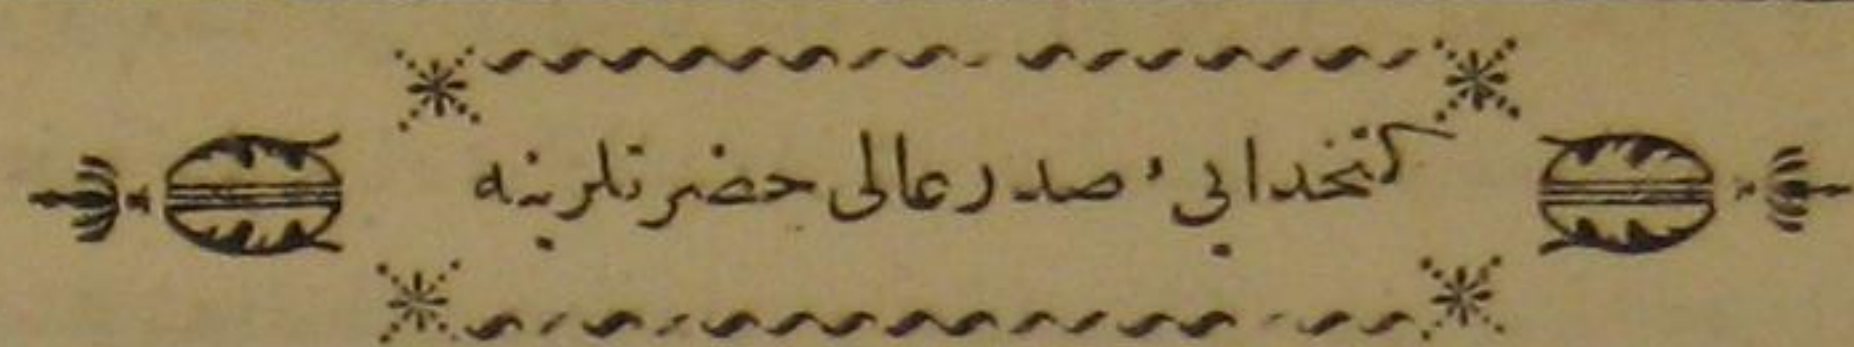 كتخدایئ صدر عالی حضرتلرینه